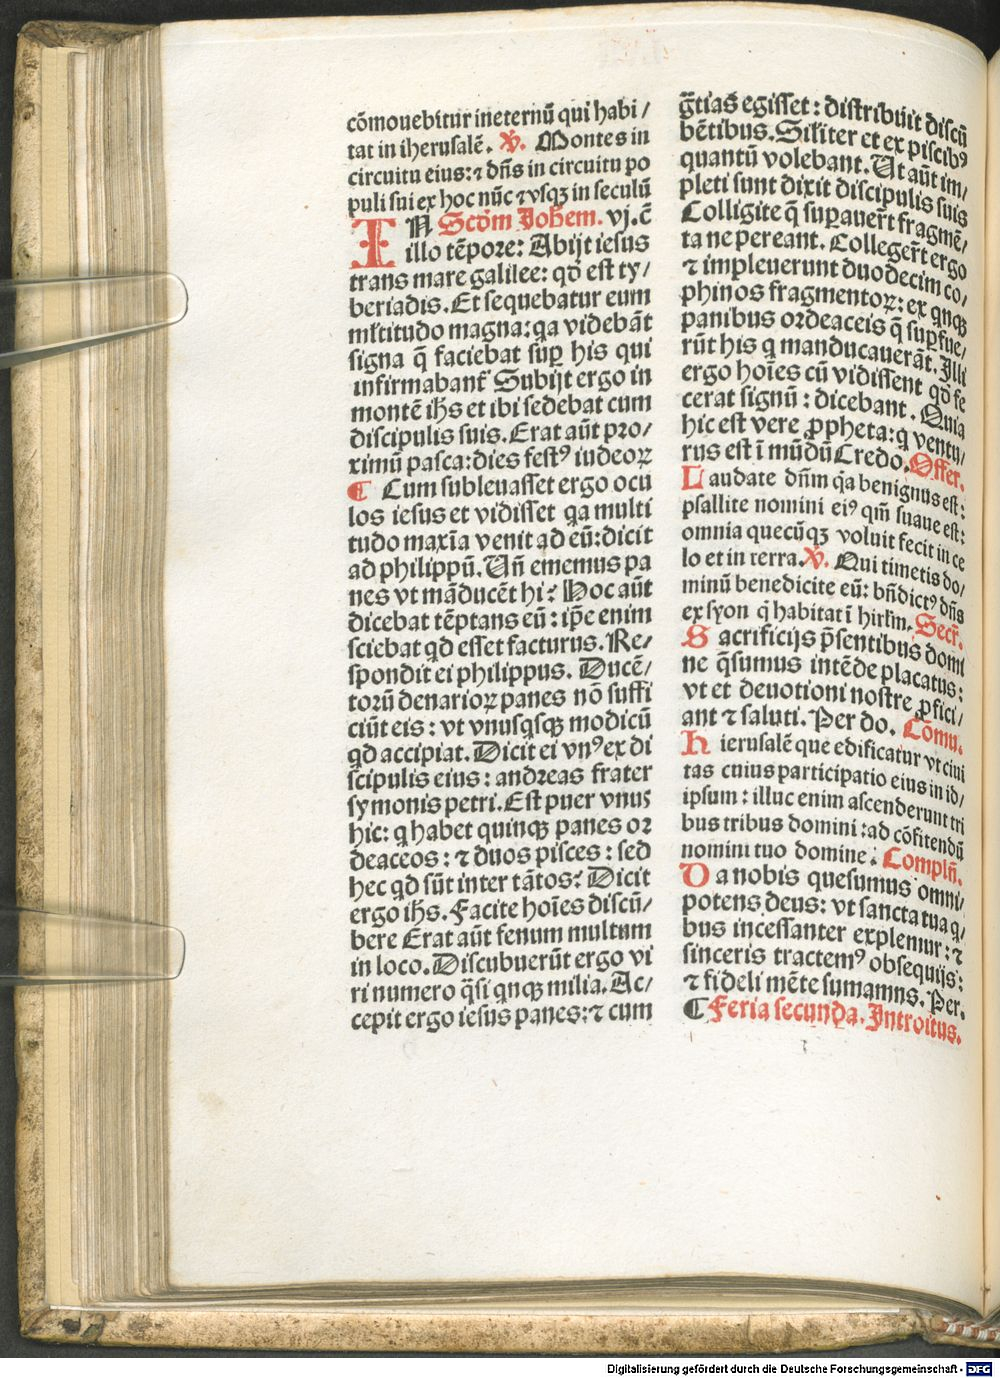 cōmouebitur in eternū qui habi/
tat in iherusalē. V̷. Montes in
circuitu eius: ⁊ dn̄s in circuitu po
puli sui ex hoc nūc ⁊ vsqꝫ in seculū
IN Scd̄m Johem. vj. c̄
illo tēpore: Abijt iesus
trans mare galilee: qd̄ est ty/
beriadis. Et sequebatur eum
ml̄titudo magna: qa videbāt
signa q̄ faciebat suꝑ his qui
infirmabant᷑ Subijt ergo in
montē ih̄s et ibi sedebat cum
discipulis suis. Erat aūt pro/
ximū pasca: dies festꝰ iudeoꝝ
¶ Cum subleuasset ergo ocu
los iesus et vidisset qa multi
tudo maxīa venit ad eū: dicit
ad philippū. Vn̄ ememus pa
nes vt māducēt hi? Hoc aūt
dicebat tēptans eū: ip̄e enim
sciebat qd esset facturus. Re/
spondit ei philippus. Ducē/
torū denarioꝝ panes nō suffi
ciūt eis: vt vnusqsqꝫ modicū
qd accipiat. Dicit ei vnꝰ ex di
scipulis eius: andreas frater
symonis petri. Est puer vnus
hic: q habet quinqꝫ panes or
deaceos: ⁊ duos pisces: sed
hec qd sūt inter tātos? Dicit
ergo ih̄s. Facite hoīes discū/
bere Erat aūt fenum multum
in loco. Discubuerūt ergo vi
ri numero q̄si qnqꝫ milia. Ac/
cepit ergo iesus panes: ⁊ cum
gr̄tias egisset: distribuit discū
bētibus. Siliter et ex piscibꝰ
quantū volebant. Ut aūt im/
pleti sunt dixit discipulis suis
Colligite q̄ suꝑauer̄t fragmē/
ta ne pereant. Colleger̄t ergo
⁊ impleuerunt duodecim co/
phinos fragmentoꝝ: ex qnqꝫ
panibus ordeaceis q̄ suꝑfue/
rūt his q manducauerāt. Illi
ergo hoīes cū vidissent qd̄ fe
cerat signū: dicebant. Quia
hic est vere ꝓpheta: q ventu/
rus est ī mūdū Credo. Offer.
Laudate dn̄m qa benignus est:
psallite nomini eiꝰ qm̄ suaue est:
omnia quecūqꝫ voluit fecit in ce
lo et in terra. V̷. Qui timetis do/
minū benedicite eū: bn̄dictꝰ dn̄s
ex syon q̄ habitat ī hirlm̄. Secr̄.
Sacrificijs p̄sentibus domi
ne q̄sumus intēde placatus:
vt et deuotioni nostre ꝓfici/
ant ⁊ saluti. Per do. Cōmu.
Hierusalē que edificatur vt ciui
tas cuius participatio eius in id/
ipsum: illuc enim ascenderunt tri
bus tribus domini: ad cōfitendū
nomini tuo domine. Compln̄.
Da nobis quesumus omni/
potens deus: vt sancta tua q/
bus incessanter explemur: ⁊
sinceris tractemꝰ obsequijs:
⁊ fideli mēte sumamus. Per.
¶ Feria secunda. Introitus.
Digitalisierung gefördert durch die Deutsche Forschungsgemeinschaft - DFG